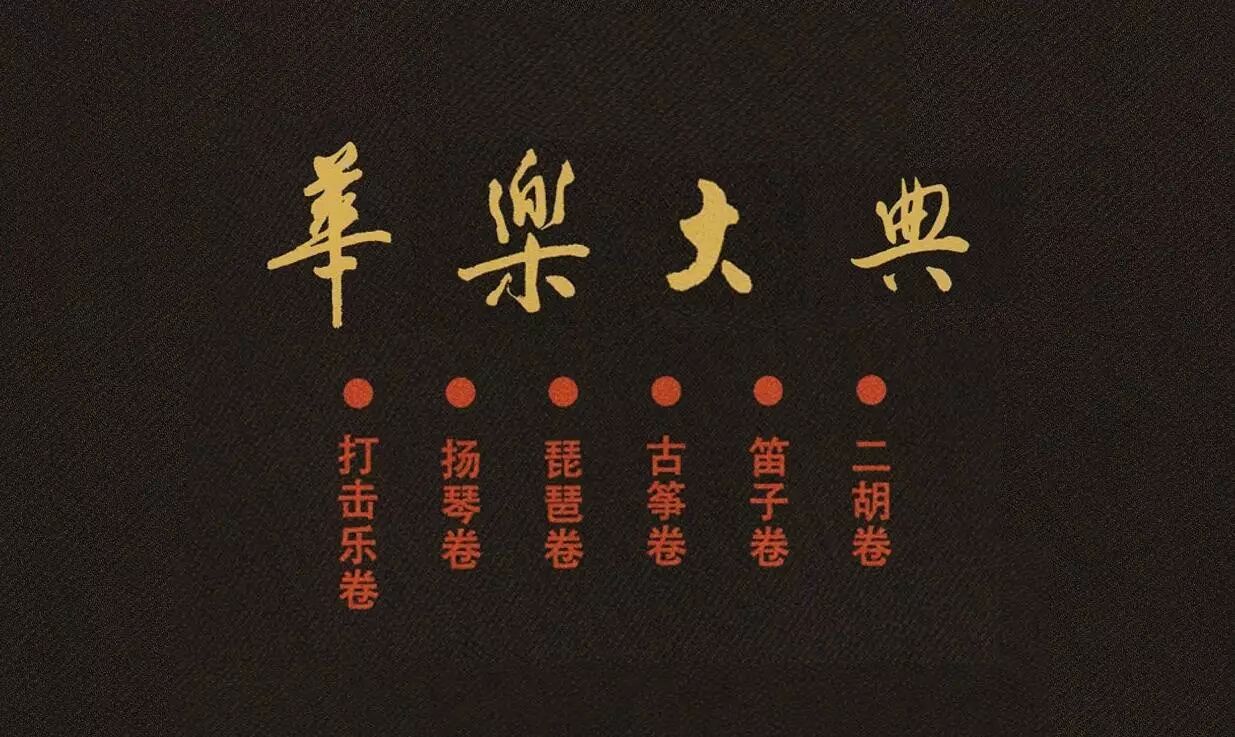 華樂大典
二胡卷
笛子卷
古筝卷
琵琶卷
扬琴卷
打击乐卷